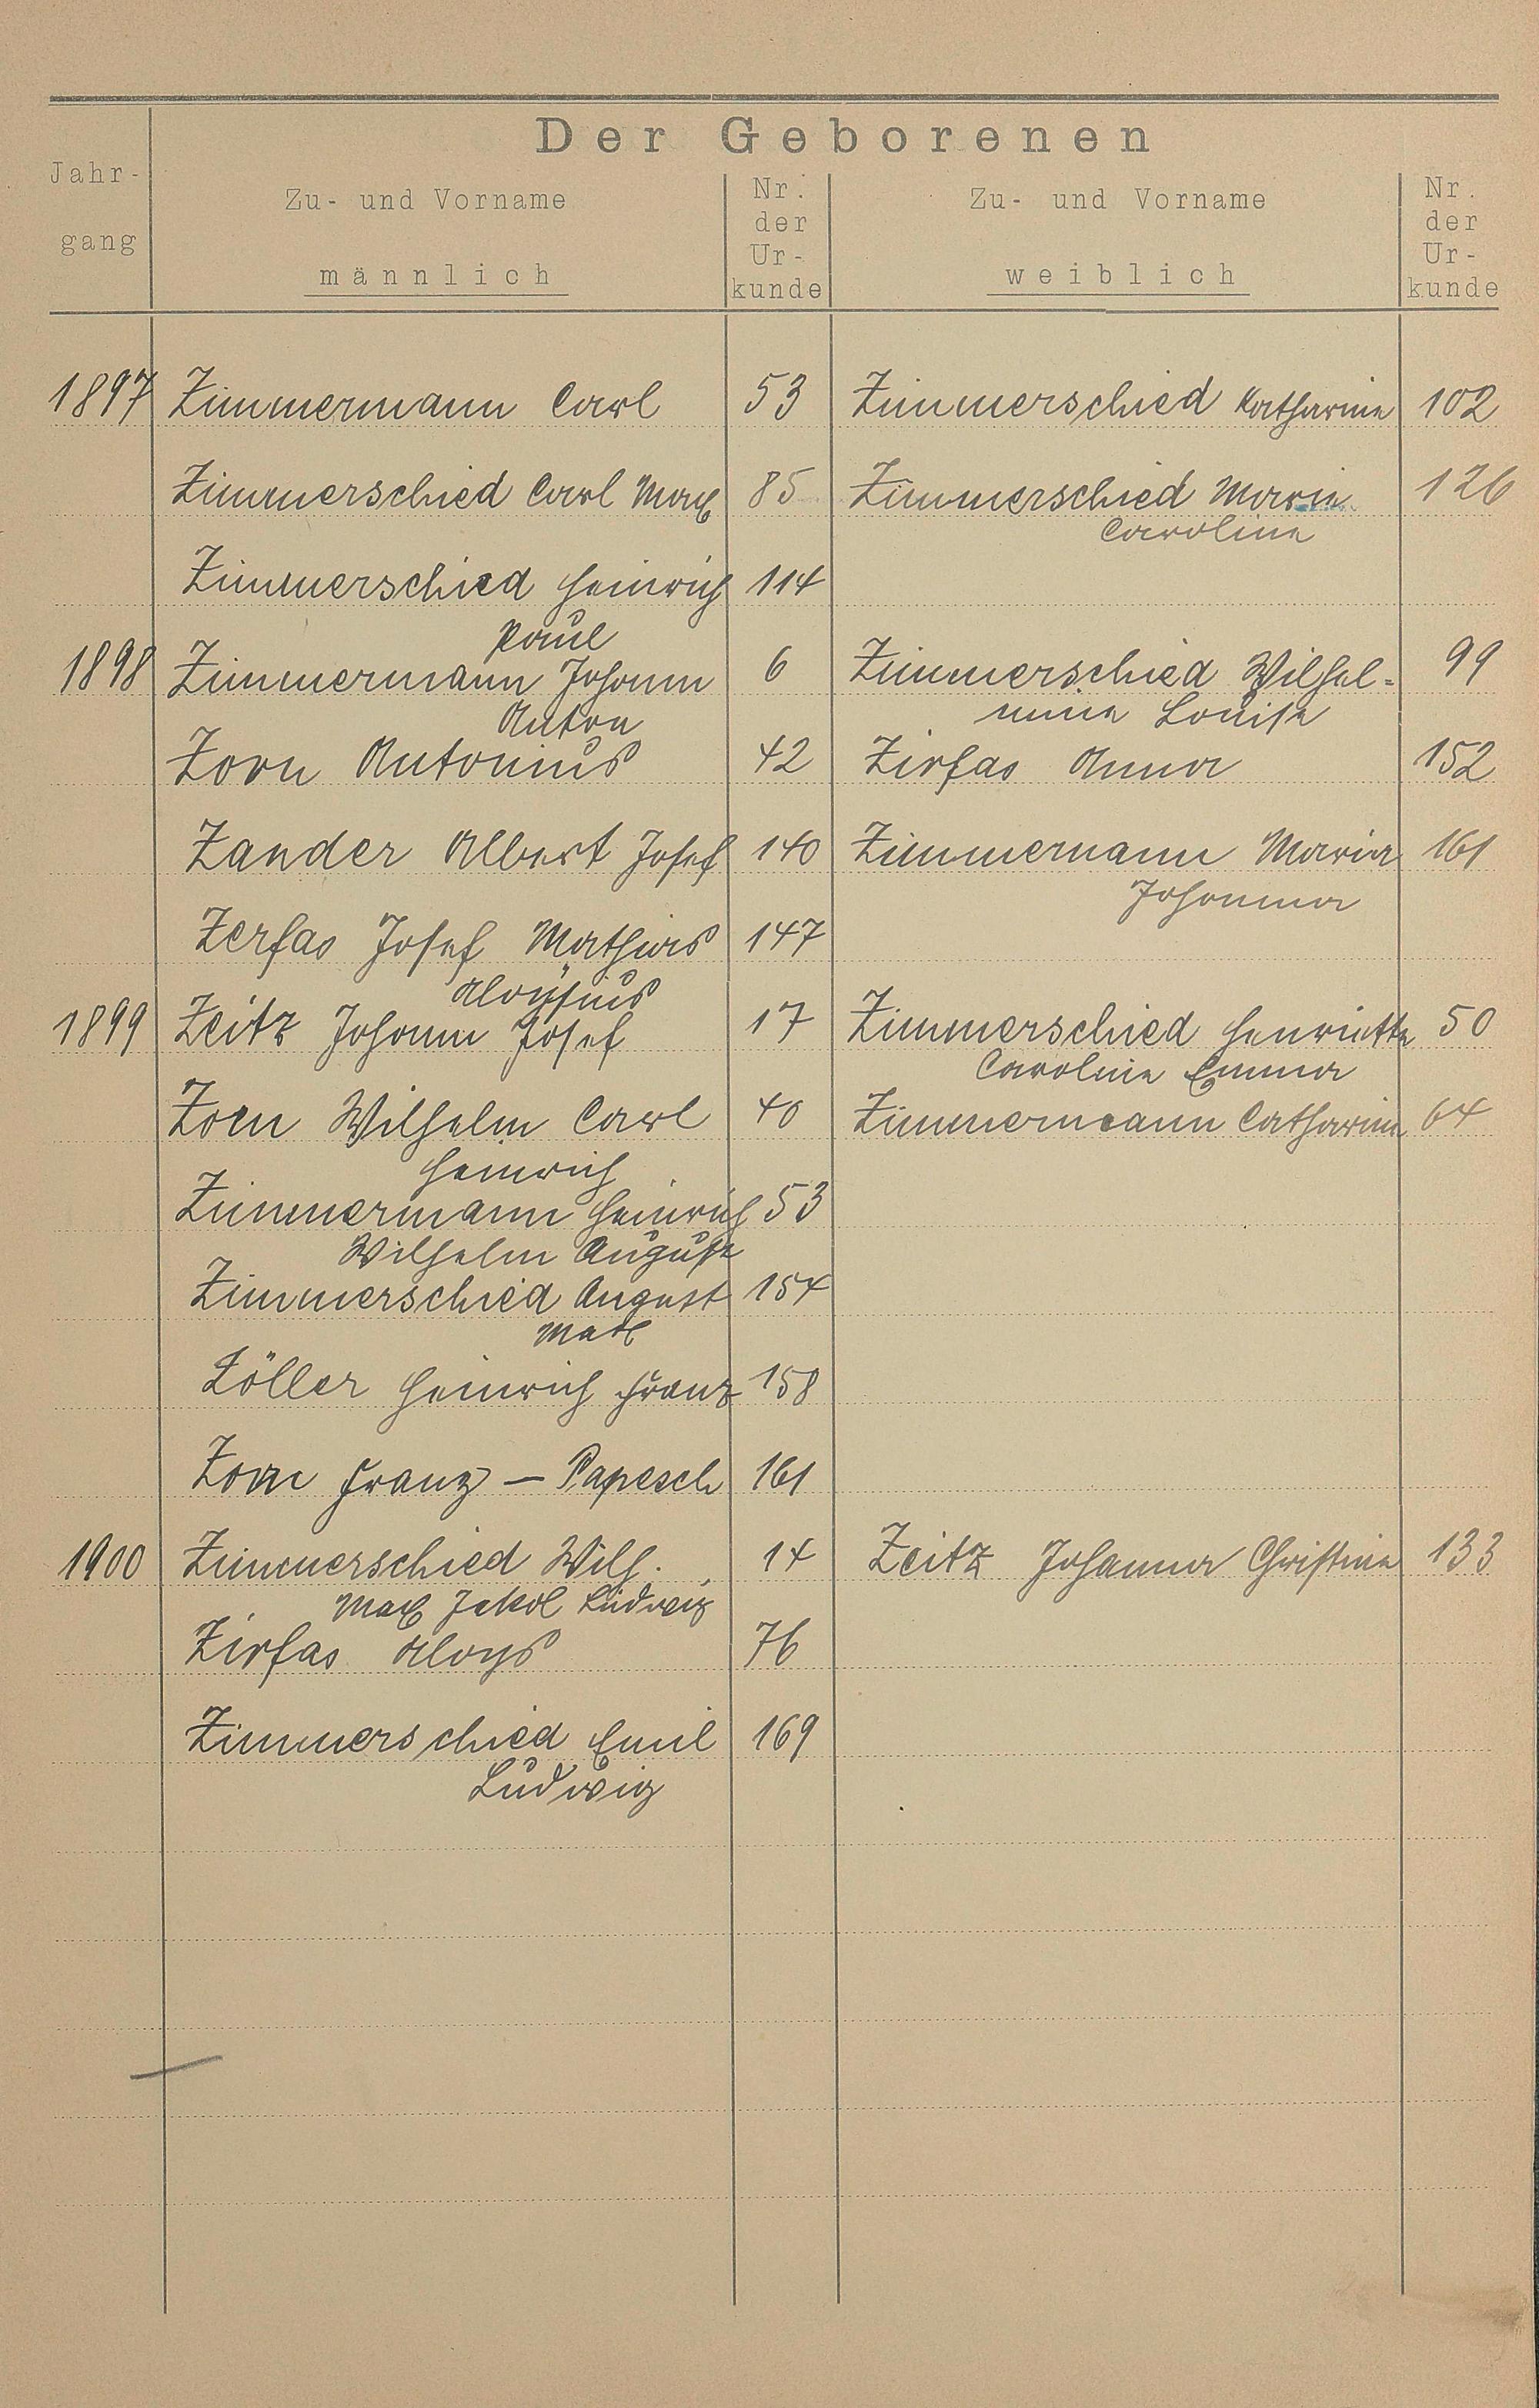 Der Geborenen
Jahr-
gang
Zu- und Vorname
männlich
Nr.
der
Ur-
kunde
Zu- und Vorname
weiblich
Nr.
der
Ur-
kunde
1897 Zimmermann Carl 53 Zimmerschied Katharine 102
Zimmerschied Carl Max 85 Zimmerschied Marie 126
Caroline
Zimmerschied Heinrich 114
Paul
1898 Zimmermann Johann 6 Zimmerschied Wilhel= 99
Anton mine Louise
Zorn Antonius 42 Zirfas Anna 152
Zander Albert Josef 140 Zimmermann Maria 161
Johanna
Zerfas Josef Mathias 147
Aloÿsius
1899 Zeitz Johann Josef 17 Zimmerschied Henriette 50
Caroline Emma
Zorn Wilhelm Carl 40 Zimmermann Catharina 64
Heinrich
Zimmermann Heinrich 53
Wilhelm August
Zimmerschied August 154
Max
Zöller Heinrich Franz 158
Zorn Franz - Papesch 161
1900 Zimmerschied Wilh. 14 Zeitz Johanna Christine 133
Max Jakob Ludwig
Zirfas Aloys 76
Zimmerschied Emil 169
Ludwig